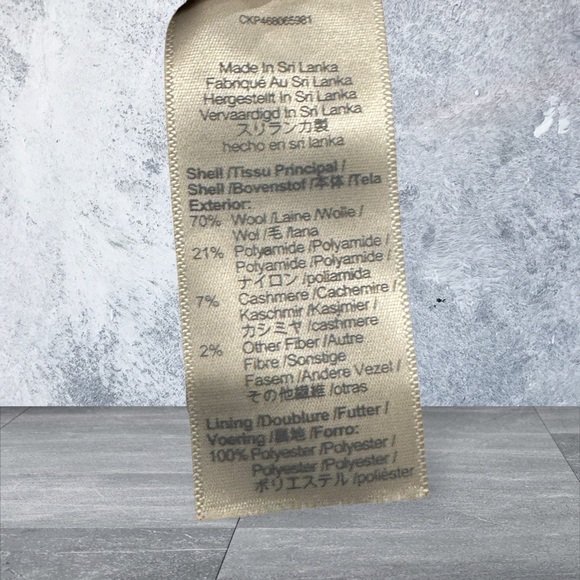 CKP468065981
Made In Sri Lanka
Fabriqué Au Sri Lanka
Hergestellt In Sri Lanka
Vervaardigd In Sri Lanka
スリランカ製
hecho en sri lanka
Shell /Tissu Principal /
Shell /Bovenstof /本体 /Tela
Exterior:
70% Wool /Laine /Wolle /
Wol /毛 /lana
21% Polyamide /Polyamide /
Polyamide /Polyamide /
ナイロン /poliamida
7% Cashmere /Cachemire /
Kaschmir /Kasjmier /
カシミヤ /cashmere
2% Other Fiber /Autre
Fibre /Sonstige
Fasern /Andere Vezel /
その他繊維 /otras
Lining /Doublure /Futter /
Voering /裏地 /Forro:
100% Polyester /Polyester /
Polyester /Polyester /
ポリエステル /poliéster